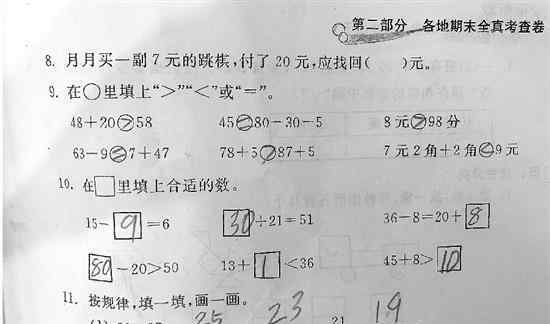 第二部分 各地期末全真考查卷
8. 月月买一副7元的跳棋,付了20元,应找回( )元。
9. 在○里填上“>”“<”或“=”。
48+20>58 45=80-30-5 8元>98分
63-9=7+47 78+5>87+5 7元2角+2角<9元
10. 在□里填上合适的数。
15-9=6 30÷21=51 36-8=20+8
80-20>50 13+1<36 45+8>10
11. 按规律,填一填,画一画。
25 23 21 19